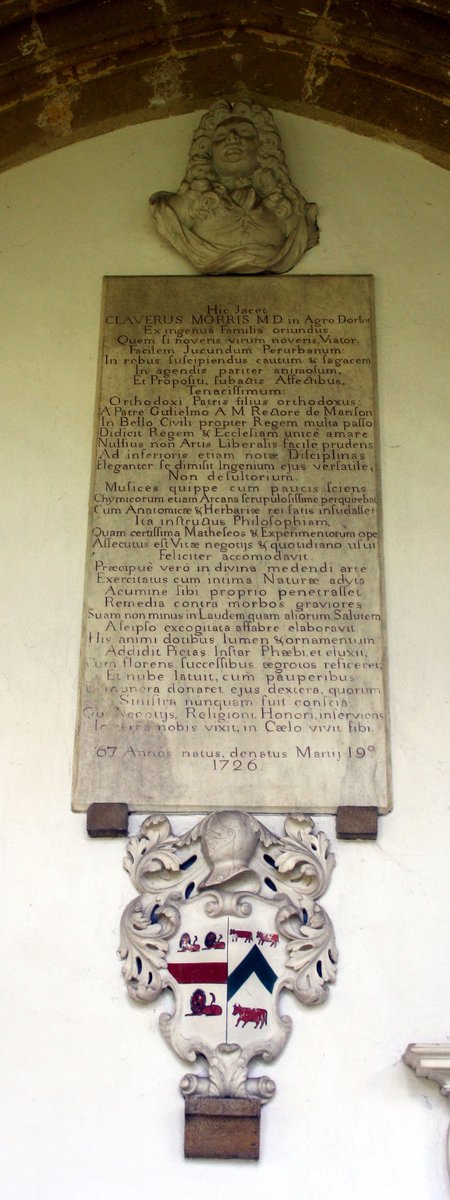 Hic Jacet
CLAVERUS MORRIS M.D. in Agro Dorst
Ex ingenua Familia oriundus
Quem si noveris, virum noveris, Viator,
Facilem Jucundum Perurbanum:
In rebus suscipiendis cautum & sagacem
In agendis pariter animosum,
Et Propositi, subactis Affectibus,
Tenacissimum:
Orthodoxi Patris filius orthodoxus:
A Patre Gulielmo A M Rectore de Manson
In Bello Civili propter Regem multa passo
Didicit Regem & Ecclesiam unicè amare.
Nullius non Artis Liberalis facile prudens
Ad inferioris etiam notæ Disciplinas
Eleganter se dimisit Ingenium ejus versatile,
Non desultorium.
Musices quippe cum paucis sciens
Chymicorum etiam Arcana scrupulosissime perquirebat
Cum Anatomicæ & Herbariæ rei satis insudasset
Ita instructus Philosophiam,
Quam certissima Matheseos & Experimentorum ope
Assecutus est Vitæ negotijs & quotidiano usui
Feliciter accomodavit.
Præcipuè vero in divina medendi arte
Exercitatus cum intima Naturæ adyta
Acumine sibi proprio penetrasset
Remedia contra morbos graviores
Suam non minus in Laudem quam aliorum Salutem
A seipso excogitata affabre elaboravit.
His animi dotibus lumen & ornamentum
Addidit Pietas Instar Phæbi, et eluxit,
Cum florens successibus ægrotos reficeret
Et nube latuit, cum pauperibus
munera donaret ejus dextera, quorum
Sinistra nunquam fuit conscia.
Negotijs, Religioni, Honori, inserviens
In terra nobis vixit, in Cælo vivit sibi.
67 Annos natus, denatus Martij 19º
1726.